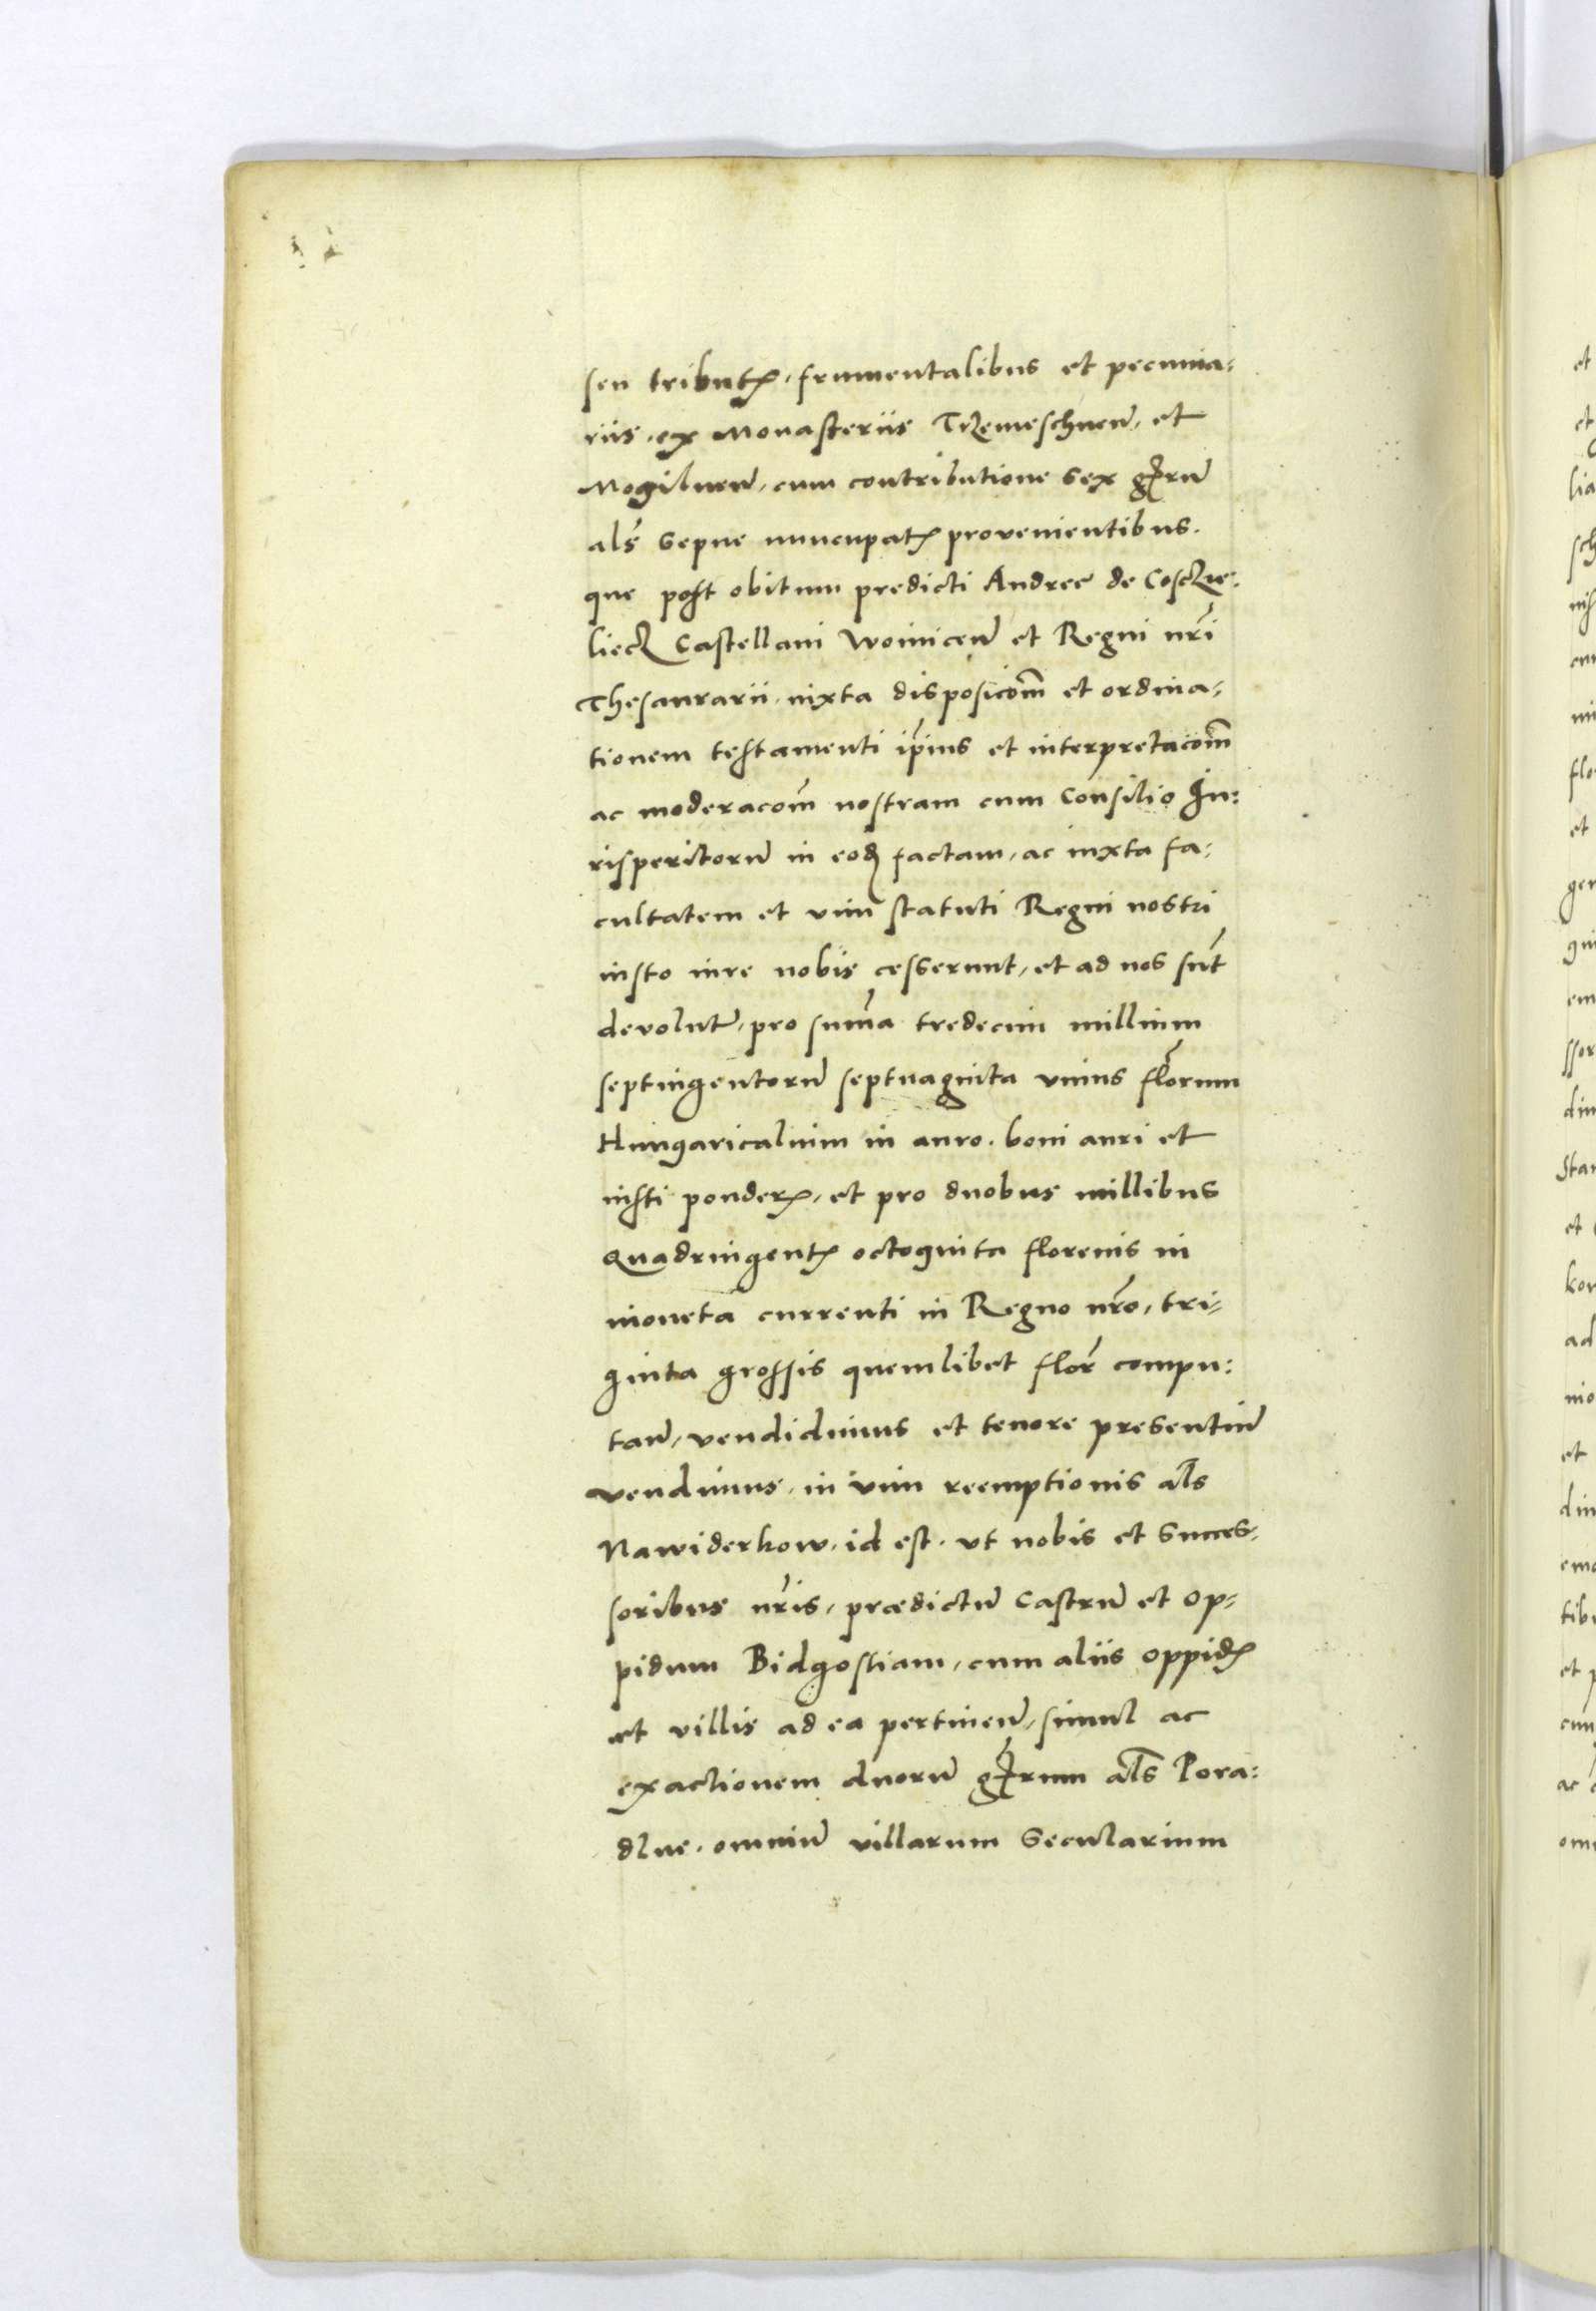 seu tributꝭ, frumentalibus et pecunia-
riis, ex Monasteriis Trzemeschneñ, et
Mogilneñ, cum contributione sex gṙrũ
als̃ sepne nuncupatꝭ provenientibus.
que post obitum predicti Andree de Cosczie-
liecz Castellani Woiniceñ et Regni nr̃i
Thesaurarii, iuxta disposicõm et ordina-
tionem testamenti ip̃ius et interpretacõm
ac moderacõm nostram cum Consilio Iu-
risperitorũ in eodꝫ factam, ac iuxta fa-
cultatem et vim statuti Regni nostri
iusto iure nobis cesserunt, et ad nos sũt
devolutꝭ, pro sum̃a tredecim millium
septingentorũ septuaginta unius flõrum
Hungaricalium in auro, boni auri et
iusti ponderꝭ, et pro duobus millibus
Quadringentꝭ octoginta florenis in
moneta currenti in Regno nr̃o, tri-
ginta grossis quemlibet flor̃ compu-
tañ, vendidimus et tenore presentiũ
vendimus, in vim reemptionis als̃
Nawiderkow, id est, vt nobis et Succes-
soribus nr̃is, prædictũ Castrũ et Op-
pidum Bidgostiam, cum aliis oppidꝭ
et villis ad ea pertineñ, simul ac
exactionem duorũ gṙrum als̃ Pora-
dlne, omniũ villarum Secularium
et
et
lia
sch
flo
et
ger
em
ssor
Star
et
kon
ad
mo
et
tib
et p
ac